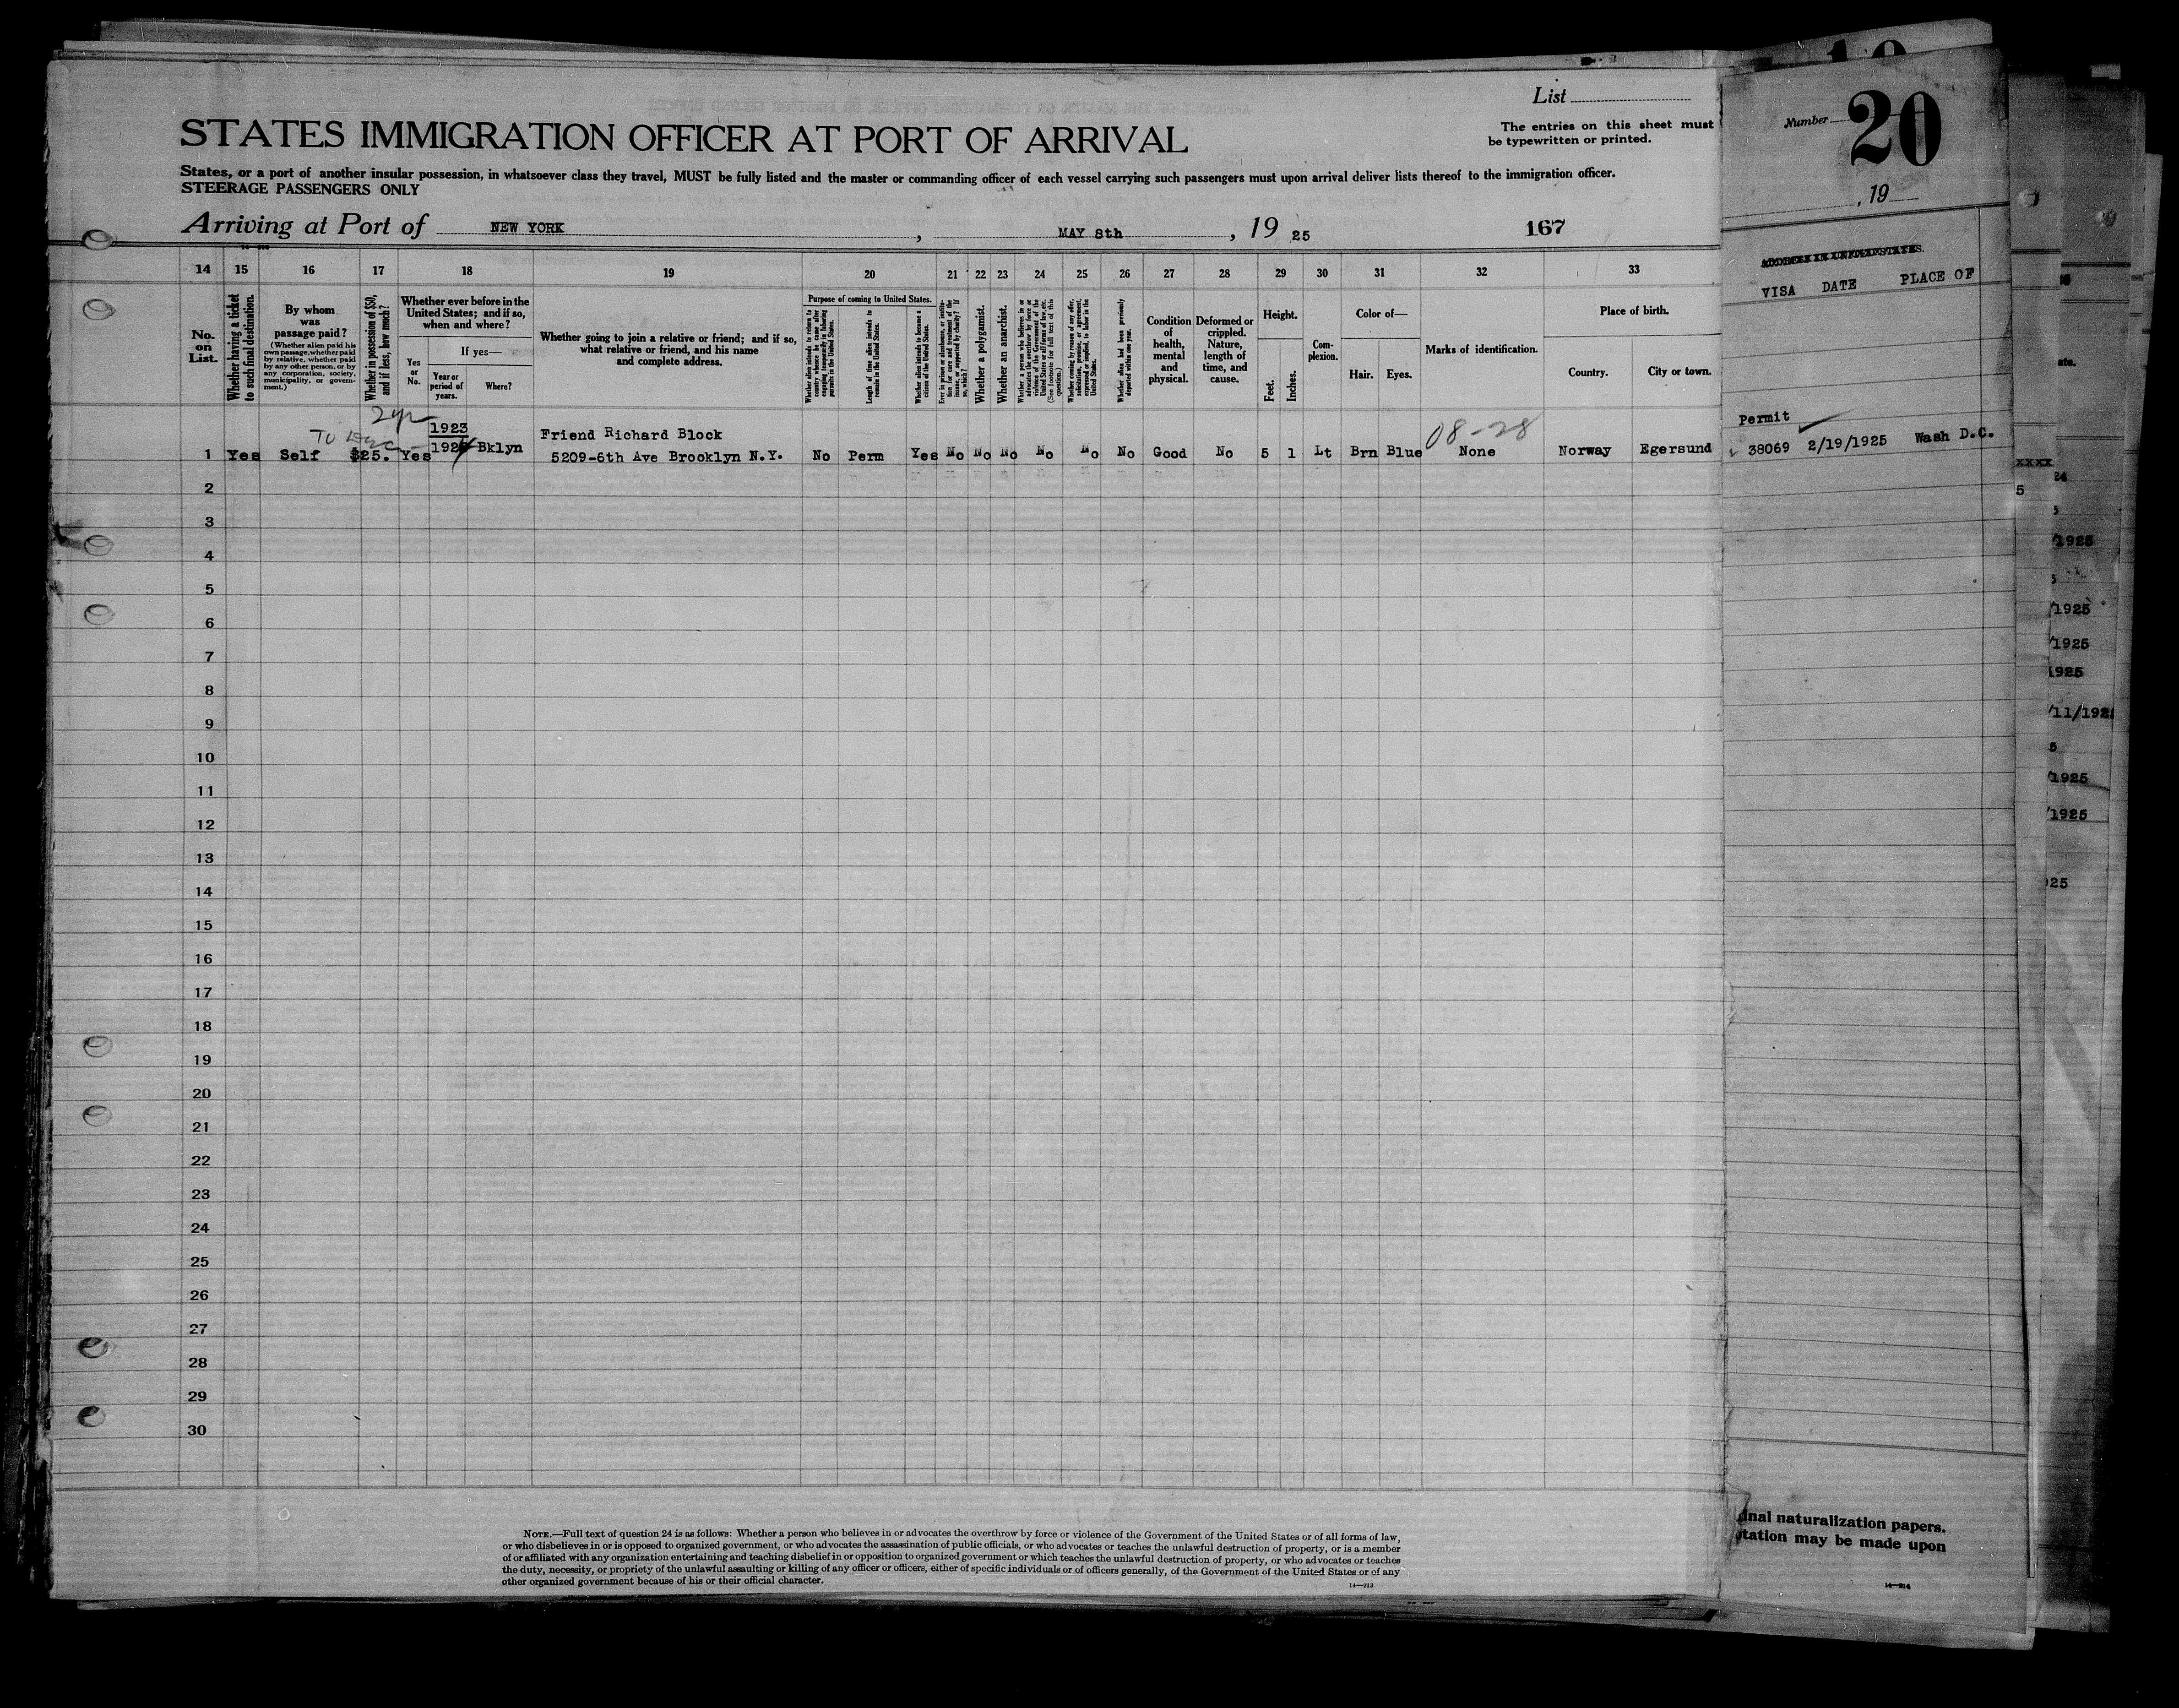 List
Number 20
STATES IMMIGRATION OFFICER AT PORT OF ARRIVAL
The entries on this sheet must
be typewritten or printed.
, 19
States, or a port of another insular possession, in whatsoever class they travel, MUST be fully listed and the master or commanding officer of each vessel carrying such passengers must upon arrival deliver lists thereof to the immigration officer.
STEERAGE PASSENGERS ONLY
Arriving at Port of NEW YORK , MAY 8th , 19 25 167
VISA DATE PLACE OF
14 15 16 17 18 19 20 21 22 23 24 25 26 27 28 29 30 31 32 33
No. on List.
Whether having a ticket to such final destination.
By whom was passage paid?
(Whether alien paid his own passage, whether paid by relative, whether paid by any other person, or by any corporation, society, municipality, or government.)
Whether in possession of $50, and if less, how much?
Whether ever before in the United States; and if so, when and where?
Yes or No.
If yes—
Year or period of years.
Where?
Whether going to join a relative or friend; and if so, what relative or friend, and his name and complete address.
Purpose of coming to United States.
Whether alien intends to return to country whence he came after engaging temporarily in laboring pursuits in the United States.
Length of time alien intends to remain in the United States.
Whether alien intends to become a citizen of the United States.
Ever in prison or almshouse, or institution for care and treatment of the insane, or supported by charity? If so, which?
Whether a polygamist.
Whether an anarchist.
Whether a person who believes in or advocates the overthrow by force or violence of the Government of the United States or all forms of law, etc. (See footnote for full text of this question.)
Whether coming by reason of any offer, solicitation, promise, or agreement, expressed or implied, to labor in the United States.
Whether alien had been previously deported within one year.
Condition of health, mental and physical.
Deformed or crippled. Nature, length of time, and cause.
Height.
Feet.
Inches.
Complexion.
Color of—
Hair.
Eyes.
Marks of identification.
Place of birth.
Country.
City or town.
2 yr
1923
Friend Richard Block
08-28
Permit
1 Yes Self $25. Yes Bklyn 5209-6th Ave Brooklyn N.Y. No Perm Yes No No No No No No Good No 5 1 Lt Brn Blue None Norway Egersund 38069 2/19/1925 Wash D.C.
2
3
4
5
6
7
8
9
10
11
12
13
14
15
16
17
18
19
20
21
22
23
24
25
26
27
28
29
30
ate.
xxxx
24
5
5
/1925
5
/1925
/1925
1925
/11/192
5
/1925
/1925
25
NOTE.—Full text of question 24 is as follows: Whether a person who believes in or advocates the overthrow by force or violence of the Government of the United States or of all forms of law,
or who disbelieves in or is opposed to organized government, or who advocates the assassination of public officials, or who advocates or teaches the unlawful destruction of property, or is a member
of or affiliated with any organization entertaining and teaching disbelief in or opposition to organized government or which teaches the unlawful destruction of property, or who advocates or teaches
the duty, necessity, or propriety of the unlawful assaulting or killing of any officer or officers, either of specific individuals or of officers generally, of the Government of the United States or of any
other organized government because of his or their official character.
14—213
inal naturalization papers.
tation may be made upon
14—214